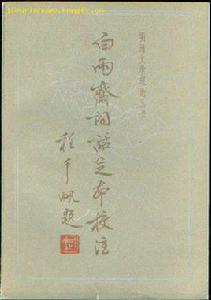 明清文學理論叢書
白雨齋詞話足本校注
程千帆題